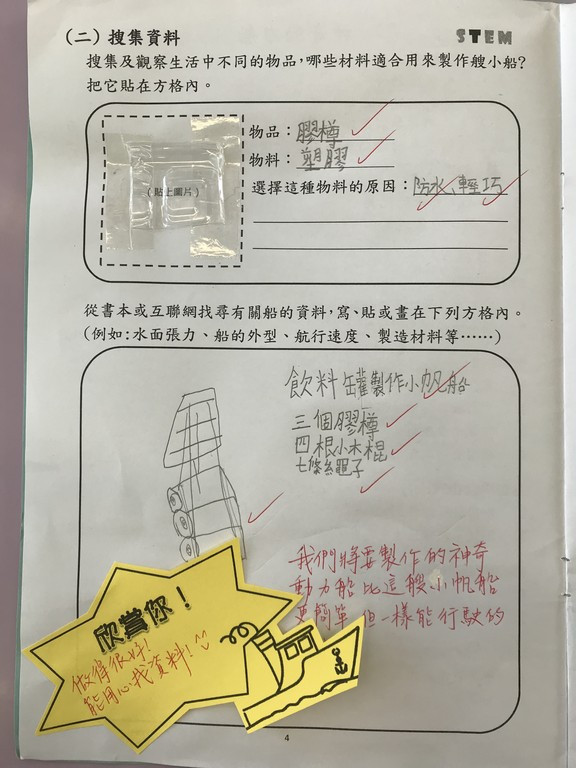 (二) 搜集資料
STEM
搜集及觀察生活中不同的物品，哪些材料適合用來製作艘小船？
把它貼在方格內。
(貼上圖片)
物品：膠樽
物料：塑膠
選擇這種物料的原因：防水、輕巧
從書本或互聯網找尋有關船的資料，寫、貼或畫在下列方格內。
(例如：水面張力、船的外型、航行速度、製造材料等……)
飲料罐製作小帆船
三個膠樽
四根小木棍
七條繩子
我們將要製作的神奇
動力船比這艘小帆船
更簡單但一樣能行駛的
欣賞你！
做得很好！
能用心找資料！
4